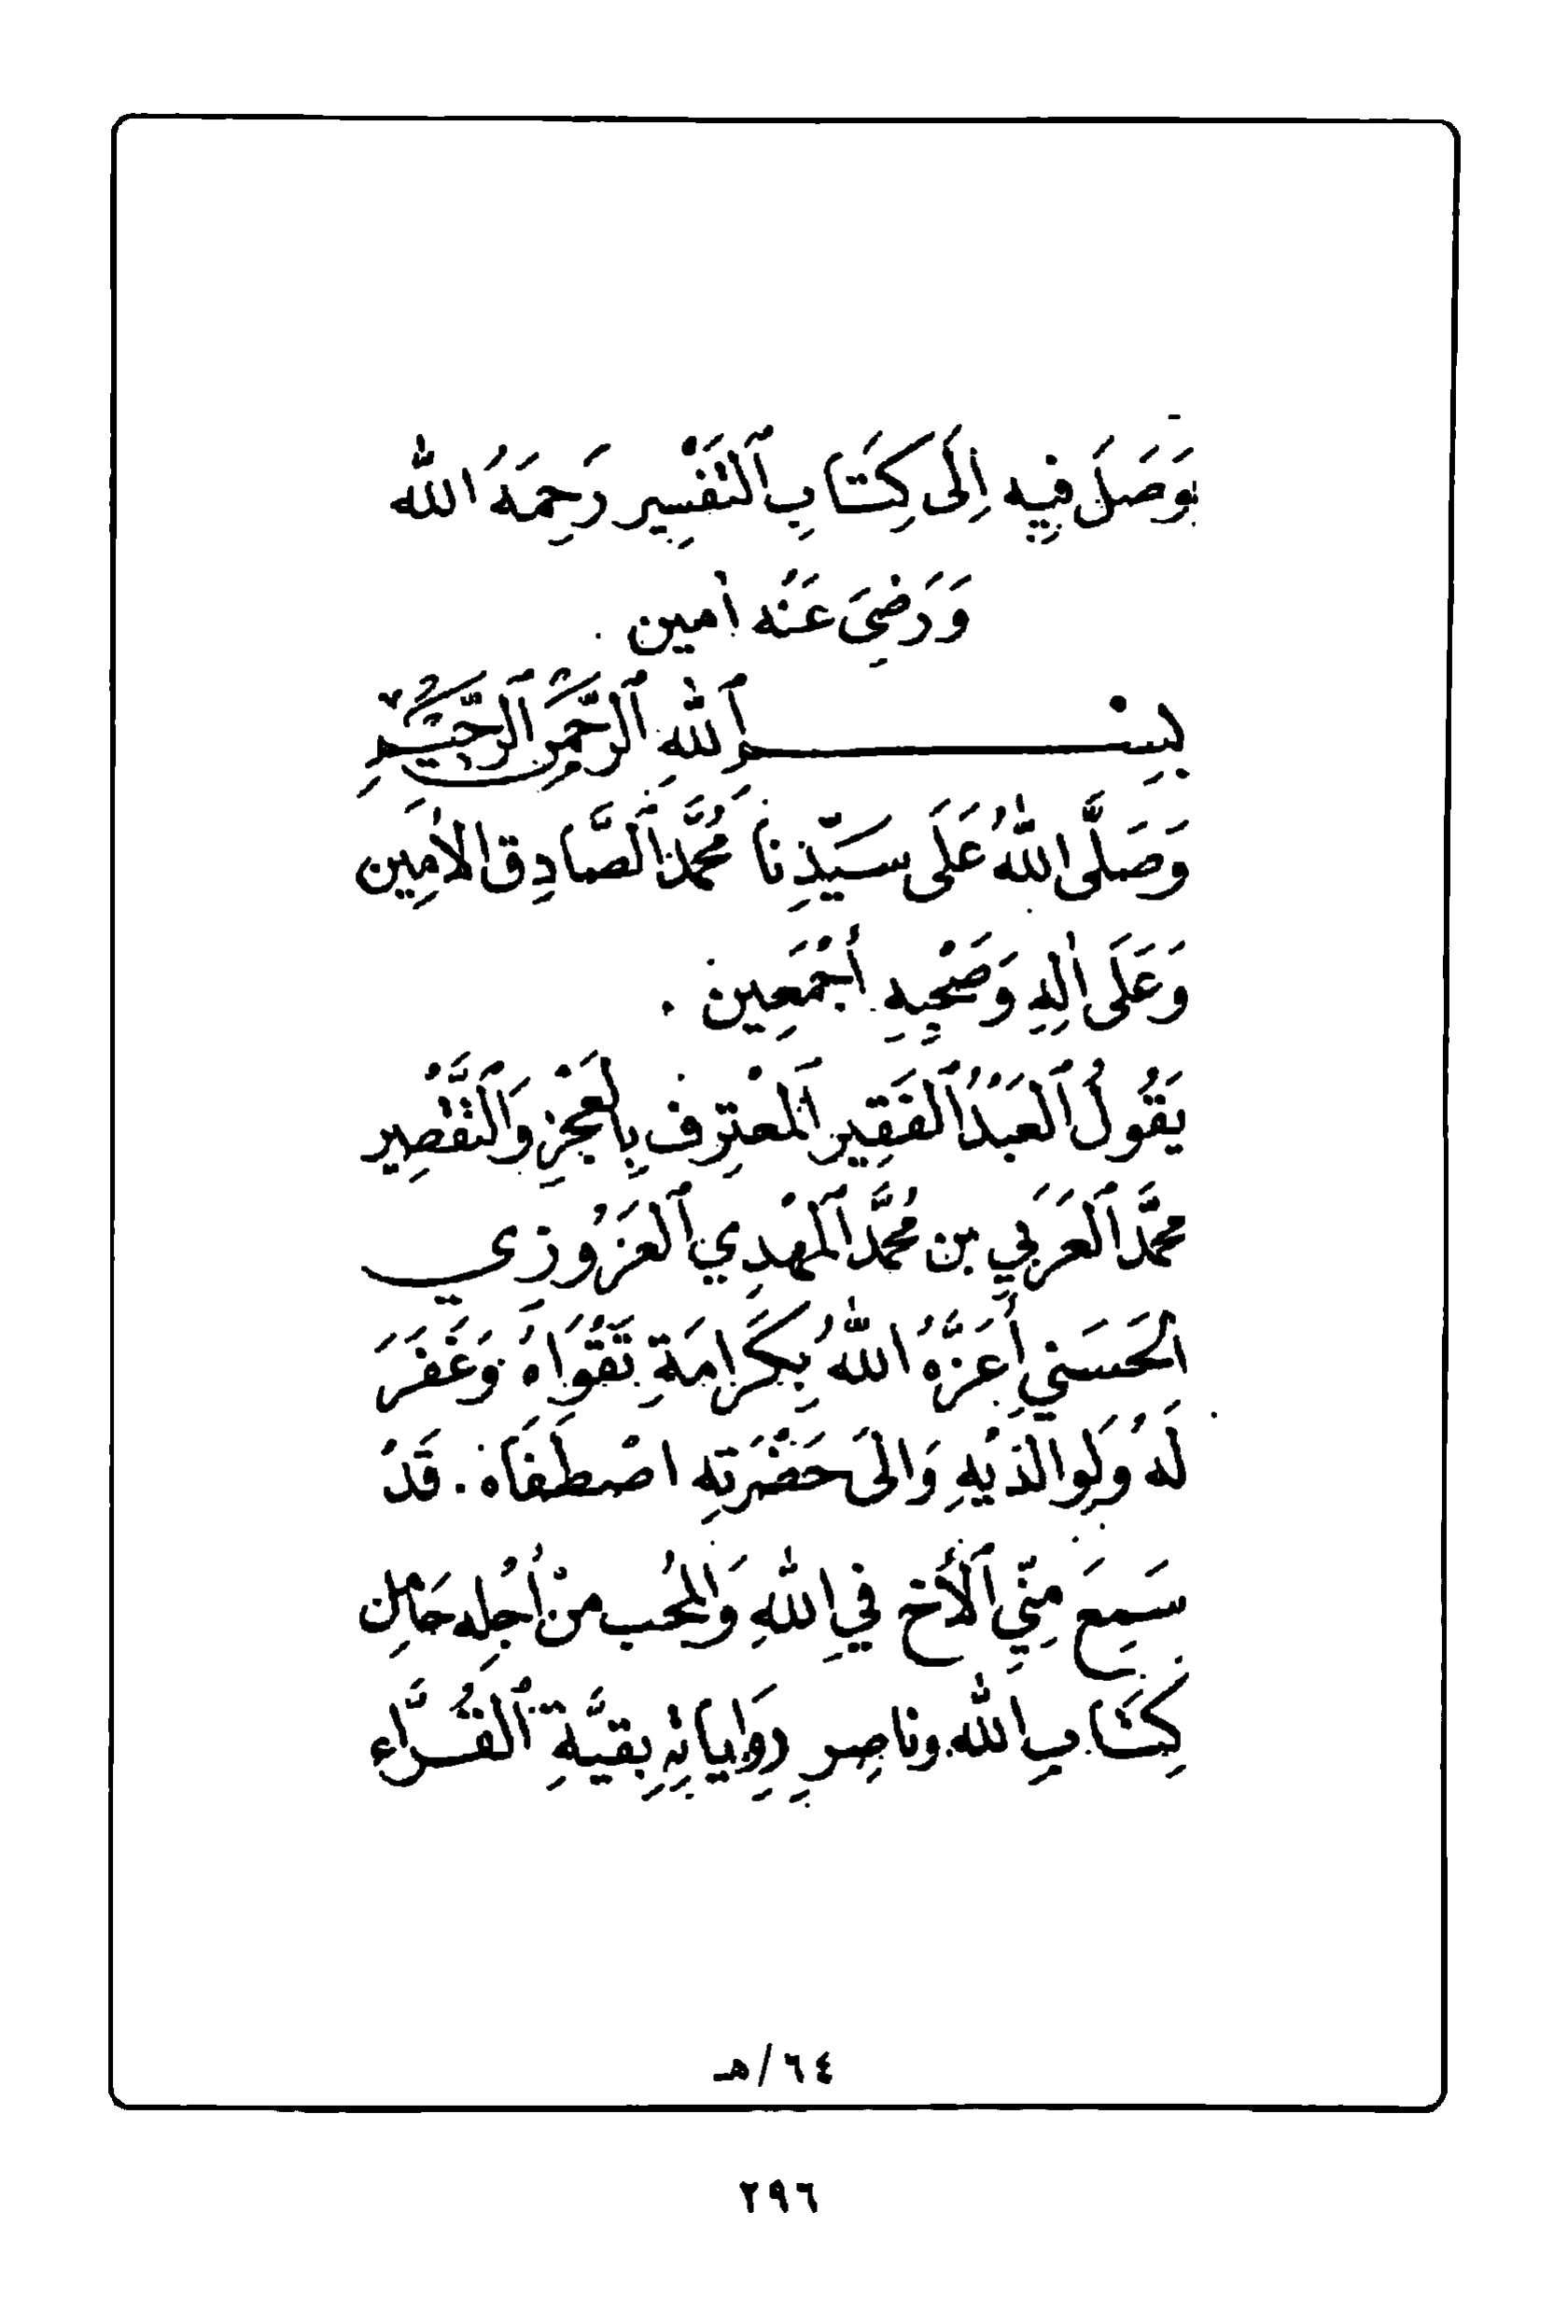 وَصَلَ فِيه اِلَى كِتَابِ ٱلتَفْسِير رَحِمَهُ الله
وَرَضِيَ عَنْه اٰمين .
بِسْمِ ٱللهِ ٱلرَّحْمٰنِ ٱلرَّحِيْمِ
وَصَلَّى اللهُ عَلَى سَيِّدِنَا مُحَمَّد ٱلصَّادِق الاَمِين
وَعَلَى اٰلِهِ وَصَحْبِهِ اَجْمَعِين .
يَقُولُ ٱلعَبْدُ ٱلفَقِير ٱلمعْتِرف بِالعَجْزِ وَٱلتَّقْصِير
محَمَّد ٱلعَرَبِي بن مُحَمَّد ٱلمَهْدِي ٱلعَزُوزِي
الحَسَنِي أَعَزَّهُ اللهُ بِكَرَامَةِ تَقْوَاهُ وَغَفَرَ
لَهُ وَلِوالدَيْهِ وَالىَ حَضْرَتِهِ اصْطَفَاه . قَدْ
سَمِعَ مِنِّي ٱلأَخ فِي اللهِ وَالمُحب منْ اَجْلِه حَامِل
كِتَابِ اللهِ وناصِرِ رِوَايَاتِهِ بِقيَّةِ ٱلقُرَّاءِ
٦٤/هـ
٢٩٦